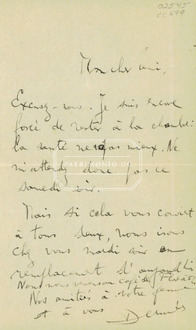 02545
Mon cher ami.
Excusez-vous. Je suis encore
forcé de rester à la chambre
la santé ne va pas mieux. Ne
m'attendez donc pas ce
samedi soir.
Mais si cela vous convient
à tous deux, nous irons
chez vous mardi soir en
remplacement d'aujourd'hui
Nos amitiés à votre femme
et à vous